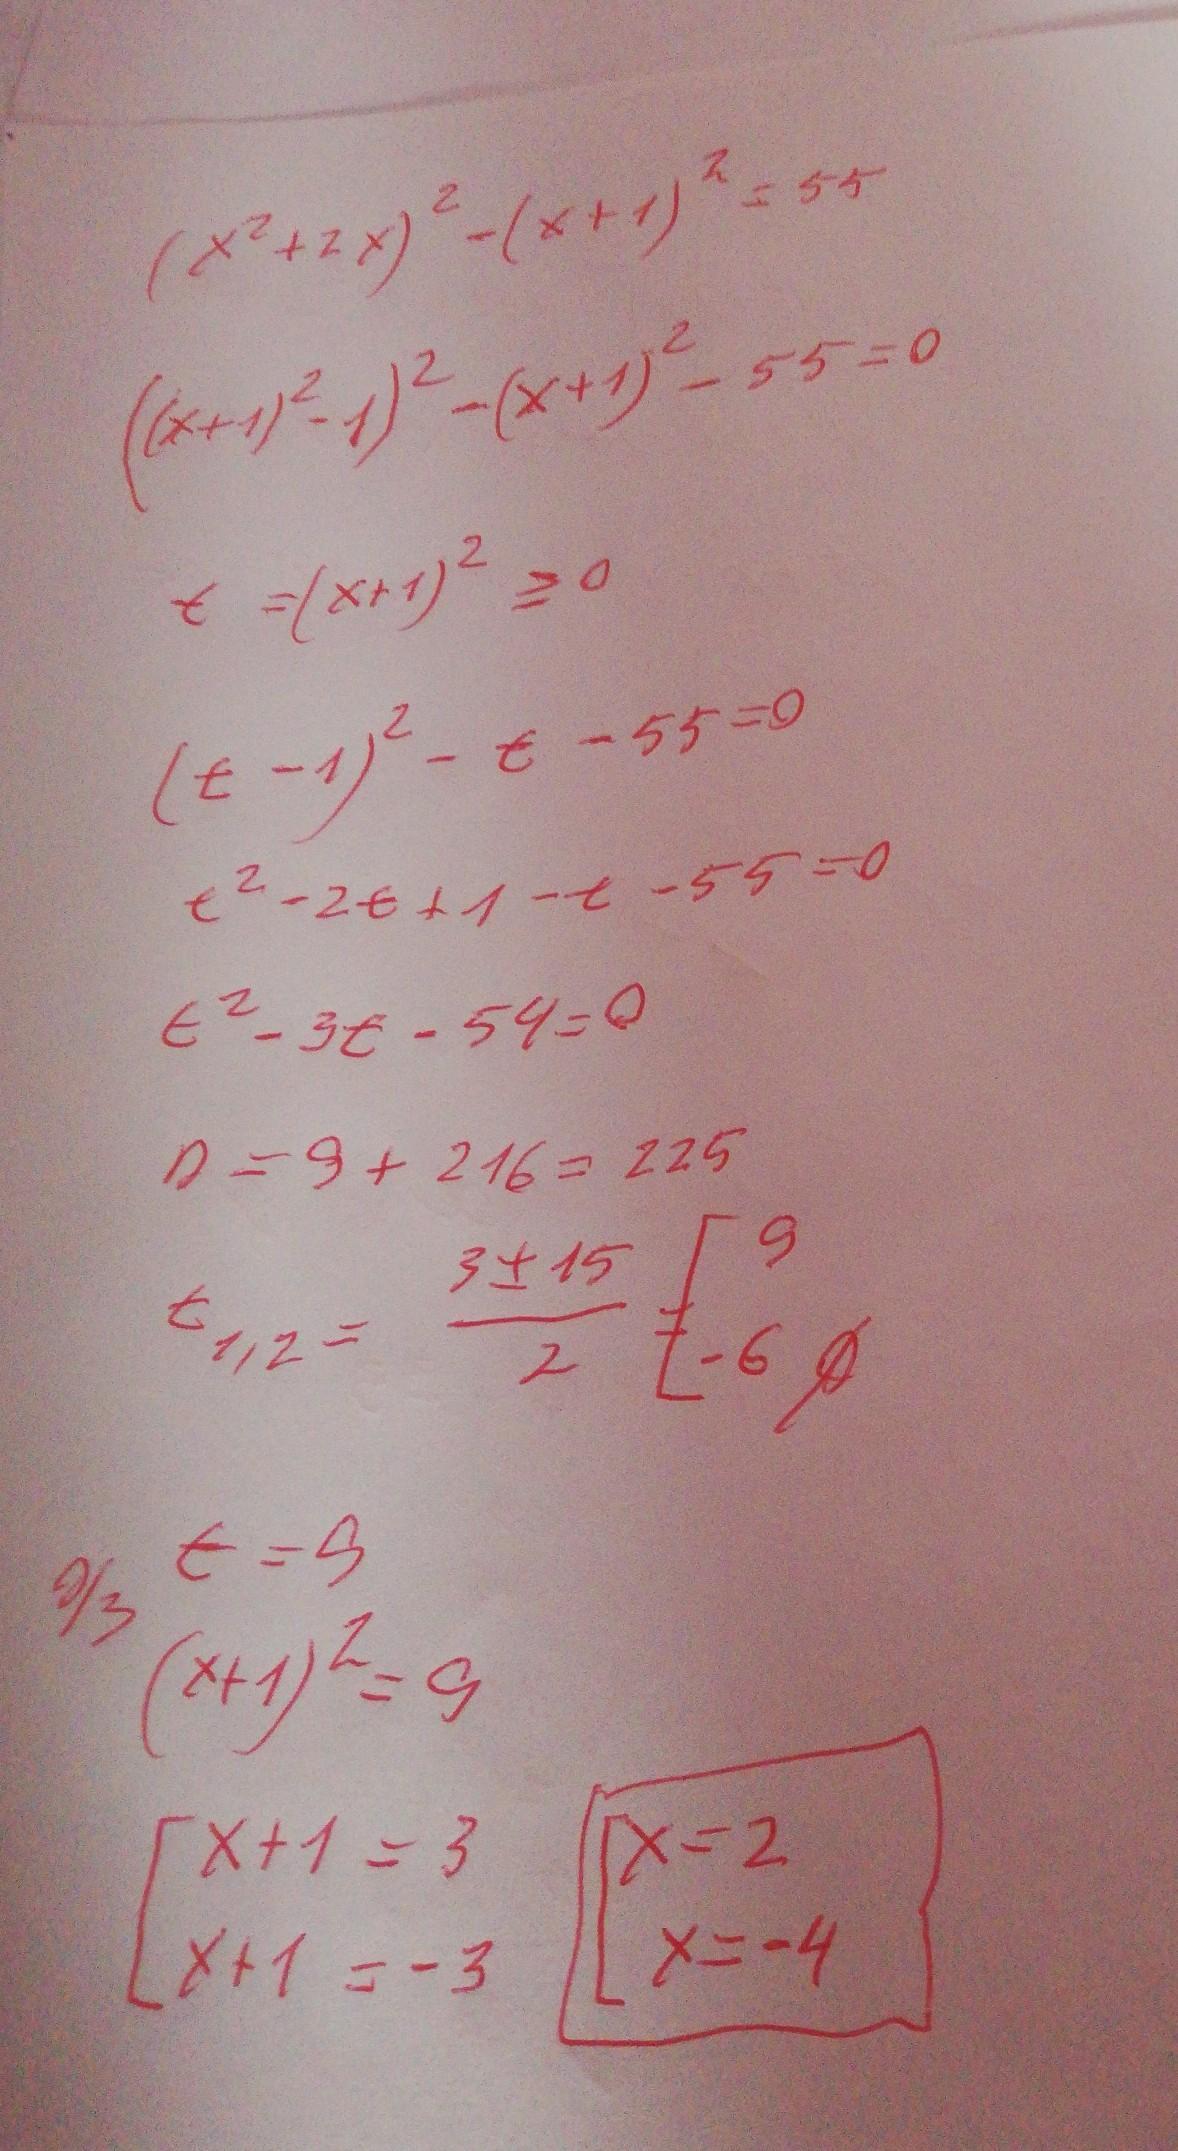 (x²+2x)²-(x+1)²=55
((x+1)²-1)²-(x+1)²-55=0
t=(x+1)²≥0
(t-1)²-t-55=0
t²-2t+1-t-55=0
t²-3t-54=0
D=9+216=225
t₁,₂=(3±15)/2=[9
-6 ∅
о/з t=9
(x+1)²=9
[x+1=3 [x=2
x+1=-3 x=-4